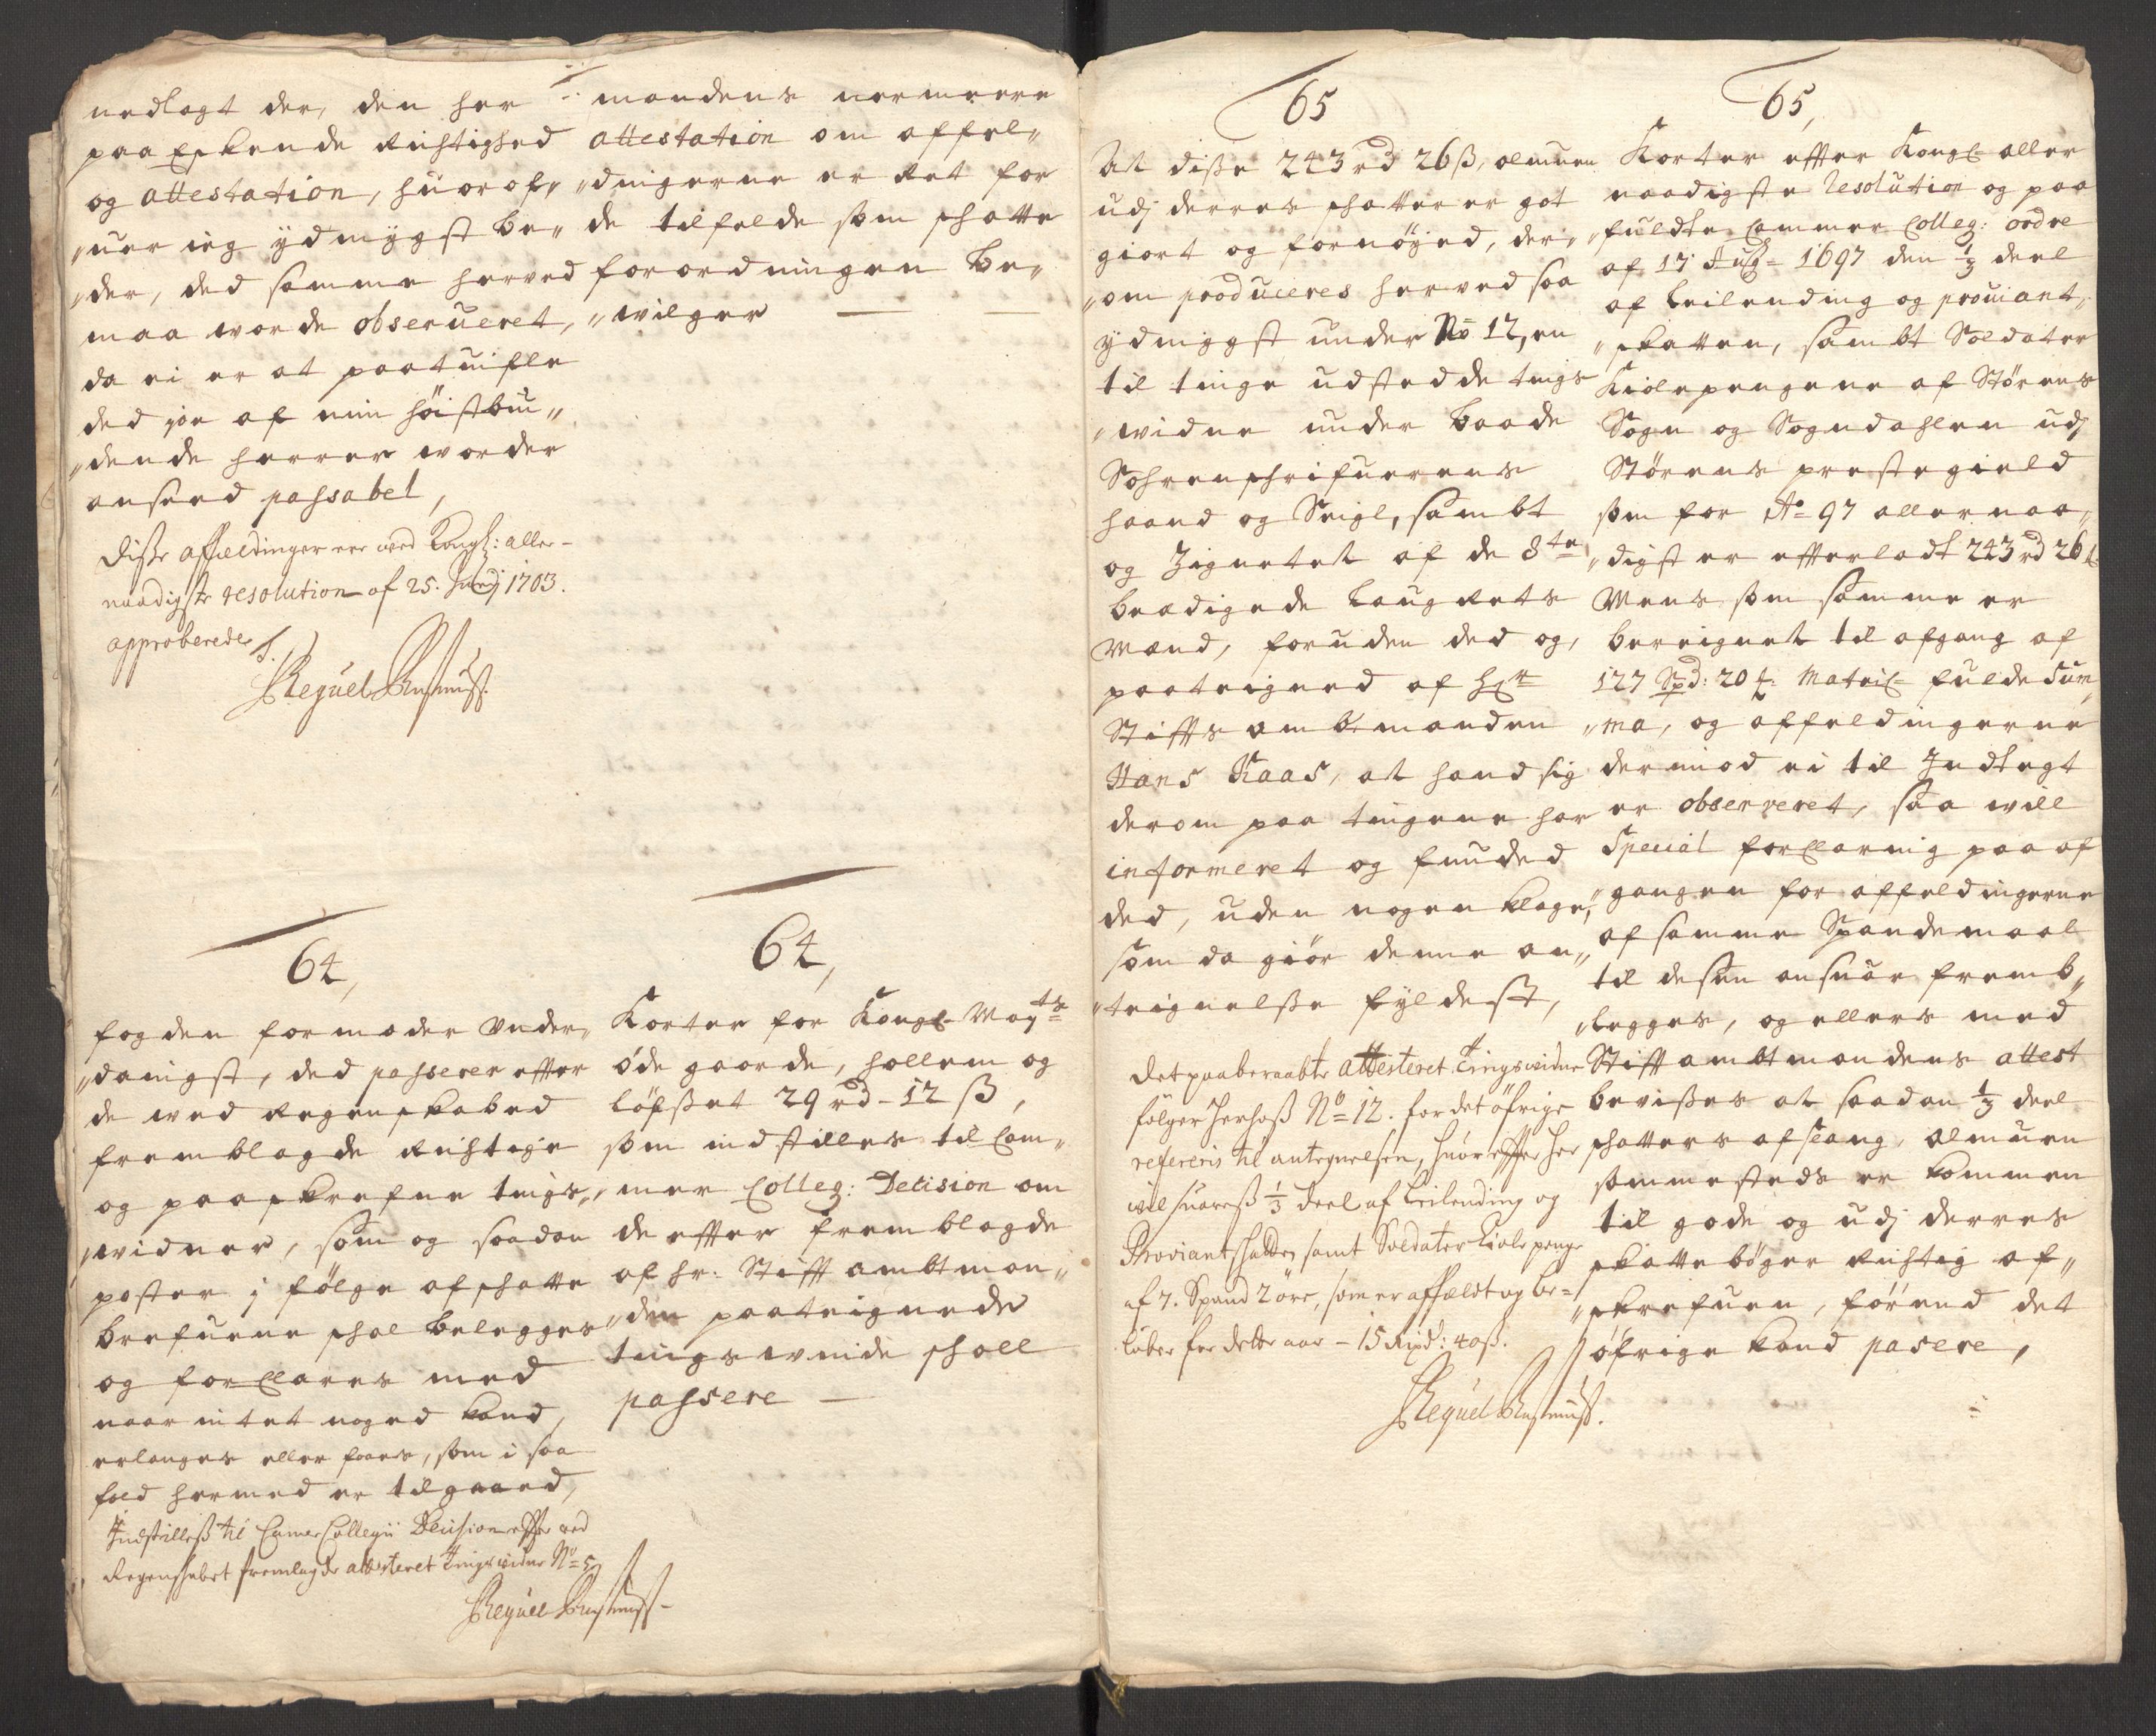 nedlagt der, den her
paaEskende Rigtighed
og attestation, huorof„
„uer ieg ydmygst be„
„der, ded samme herved
maa worde obserueret,
da ei er at paatuifle
ded joe af min høistbiu„
„dende herrer worder
anseed passabel,
Disse affældinger ere ved Kongl: aller-
naadigste resolution af 25. Junij 1703.
approberede
64,
fogden formoder Vnder„
„danigst, ded passerer effter
de wed Regenskabed
fremblagde Rigtige
og paaskrefne tings„
„widner, som og saadan
poster i følge af schatte
brefuene schal belegges
og forClares med
naar intet noged kand,
erlanges eller faaes, som i saa
fald hermed er tilgaaed,
Indstilles til Camer Collegii Decision effter ved
Regenskabet fremlagde attesteret Tingsvidne No 5
÷ mandens nermeere
attestation om affel„
„dingerne er Ret for
de tilfelde som schatte
forordningen be„
„wilger
64,
Korter for Kongl Mayts
øde gaarde, hollem og
løfset 29 rd - 12 ß,
som indstilles til Cam„
„mer Colleg: Decision om
de effter fremblagde
af hr: Stifft ambtman„
„den paateignede
tingswinde schall
passere
65
At disse 243 rd 26 ß, almuen
udj derres schatter er got
giort og fornøyed, der„
„om produceres herved saa
ydmygst under No 12, en
til tinge udstedde tings
„widne under baade
Sohrenschrifuerens
haand og Seigl, sambt
og Zignetet af de 8te
beædigede laugRets
Mænd, foruden ded og,
paateigned af Hr
Stiffts ambtmanden
Hans Kaas, at hand sig
derom paa tingene har
informeret og funded
ded, uden nogen klage,
som da giør denne an„
„teignelsse fyldest,
Det paaberaabte attesteret Tingsvidne
følger herhos No 12. for det öfrige
refereris til antegnelsen, huoreffter her
vil suares 1/3 deel af Leilending og
Proviantskatten samt Soldater Kiole penge
af 7. Spand 2 öre, som er affældt og be=
løber for dette aar - 15 Rixd: 40 ß.
65,
Korter effter Kongl aller
naadigste Resolution og paa
„fuldte Cammer Colleg: ordre
af 17 Aug= 1697 den 1/3 deel
af leilending og prouiant„
„skatten, sambt Soldater
Kiolepengene af Størens
Sogn og Sogndahlen udj
Størens prestegield
som for Ao 97 allernaa„
„digst er efterladt 243 rd 26 ß
Mens som samme er
beregnet til afgang af
127 Spd: 20 Matric fulde Sum„
„ma, og affeldingerne
derimod ei til Indtegt
er observeret, saa will
Special forClaring paa af
„gangen for affeldingerne
af samme Spandemaal
til desen ansuar fremb„
„legges, og ellers med
Stifftambtmandens attest
bevisses at saadan 1/3 deel
schatters afslaug, almuen
sammesteds er kommen
til gode og udj derres
skattebøger Rigtig af„
„skrefuen, førend det
øfrige kand pasere,